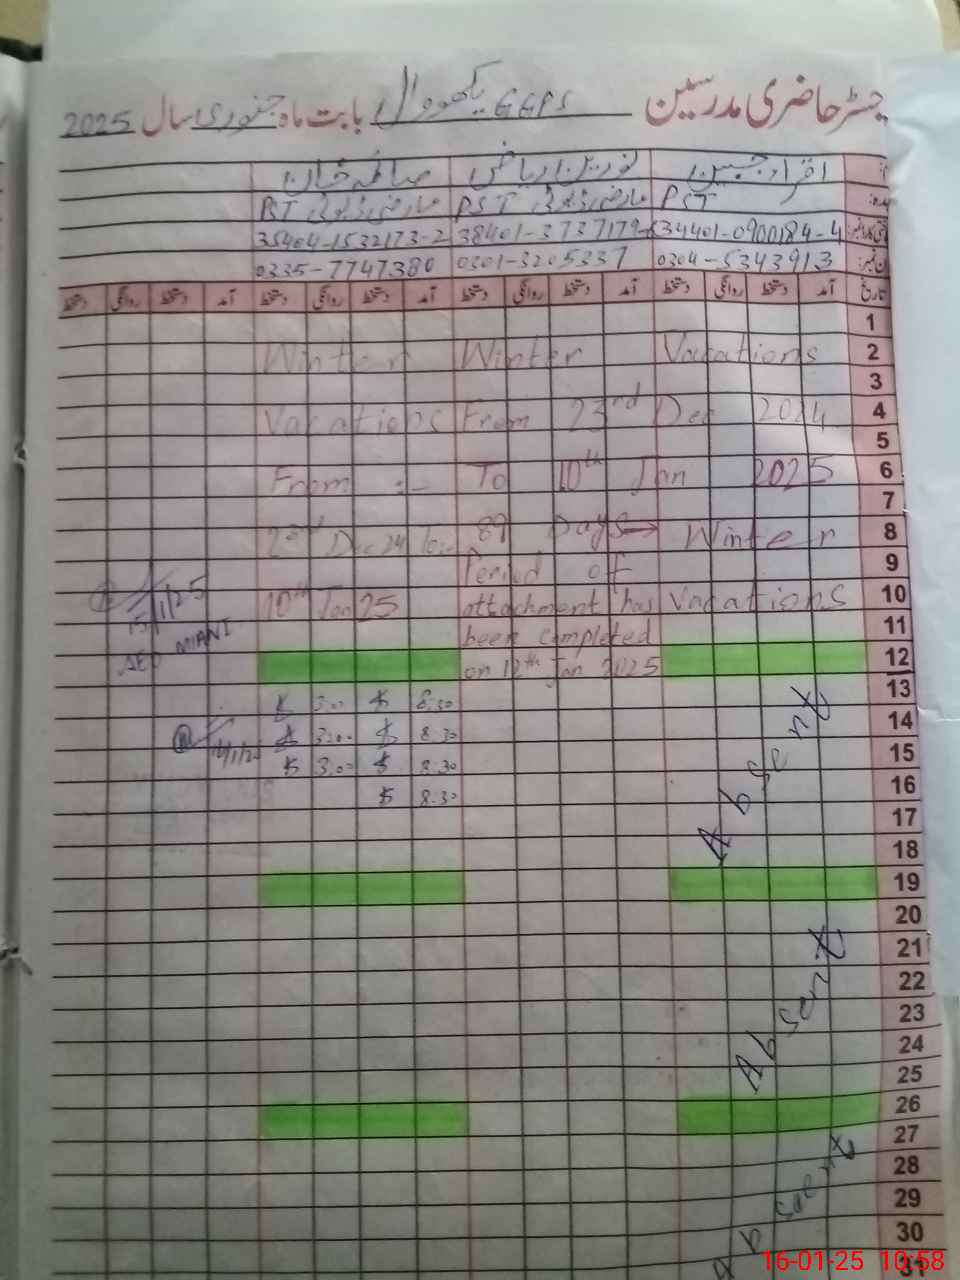 جسٹر حاضری مدرسین GGPS بابت ماہ جنوری سال 2025
اقراء جبین نورین ریاض صائمہ خان
PST PST عارضی ڈیوٹی PST عارضی ڈیوٹی
34401-0900184-4 38401-3737179- 35404-1532173-2
0304-5343913 0301-3205337 0335-7747380
تاریخ آمد دستخط روانگی دستخط آمد دستخط روانگی دستخط آمد دستخط روانگی دستخط آمد دستخط روانگی دستخط
1
Winter Winter Vacations 2
3
Vacations From 23rd Dec 2024 4
5
From :- To 10th Jan 2025 6
7
23rd Dec 24 to:- 89 Days → Winter 8
Period of 9
15/1/25 10th Jan 25 attachment has Vacations 10
AEO MIANI been completed 11
on 12th Jan 2025 12
3:00 8:30 13
3:00 8:30 14
3:00 8:30 15
8:30 16
17
Absent 18
19
20
21
22
23
Absent 24
25
26
27
28
29
Absent 30
31
16-01-25 10:58